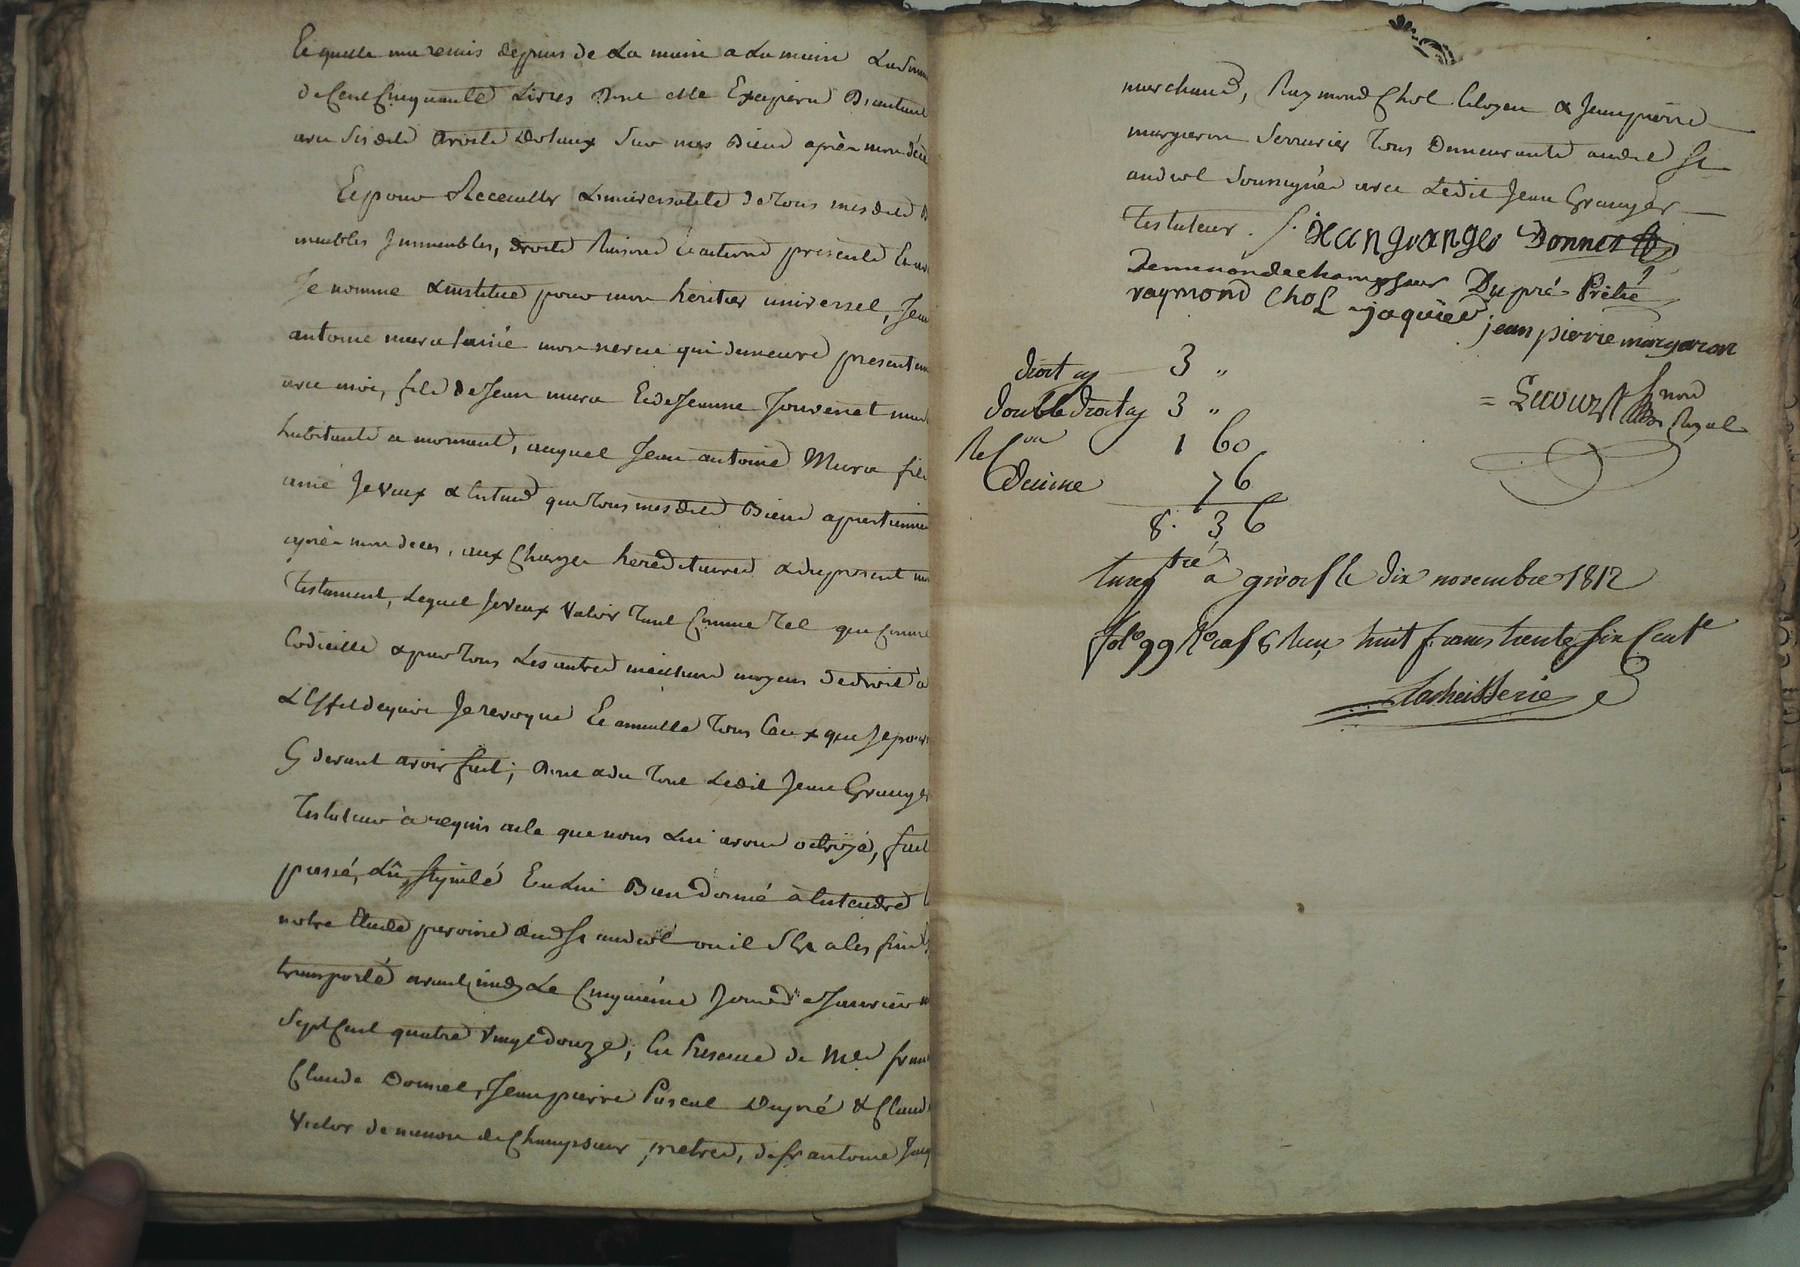 Et quelle ma remis depuis de La main a La main La Somme
de Cent Cinquante Livres dont elle Exigera
avec Sesdits droits Dotaux Sur mes Biens après mon déc
Et pour Receuillir L'universalité de Tous mesdits B
meubles Immeubles, droits Raisons Et actions présents Et av
Je nomme & institue pour mon héritier universel, Jean
antoine mura l'ainé mon neveu qui demeure présentem
avec moi, fils de Jean mura Et de Jeanne Jouvenet mar
habitants a mornant, auquel Jean antoine Mura fils
ainé Je Veux & Entend que Tous mesdits Biens apartienne
après mon decès, aux Charges hereditaires & du présent m
Testament, Lequel Je Veux Valoir Tant Comme Tel que Comme
Codicille & par Tous Les autres meilleurs moyens de droit à
L'Effet de quoi Je revoque Et annulle Tous Ceux que Je pour
Cy devant avoir fait; Dont & du Tout Ledit Jean Granger
Testateur à requis acte que nous Lui avons octroyé, fait
passé, Lû, Stipulé Et a Lui Bien Donné à Entendre
notre Etude Paroisse dud St andéol ou il S'est a Ces fins
transporté avant midy Le Cinquième Jour de Janvier m
Sept Cent quatre Vingt douze; En Présence de Mrs fran
Claude Donnet, Jean pierre Pascal Dupré & Claud
Victor demenon de Champsaur, pretres, de Sr antoine Jaq
marchand, Raymond Chol Citoyen & Jean pierre
margaron Serrurier Tous Demeurants audit St
andéol Soussignés avec Ledit Jean Granger
Testateur. Jean granger Donnet
Demenondechampsaur Dupré Prêtre
raymond Chol jaquier jean pierre margaron
droit 3 "
double droit 3 "
1 60
Décime 76
8. 36
Enregtré à givors le dix novembre 1812
fol 99 huit francs trente six Cent